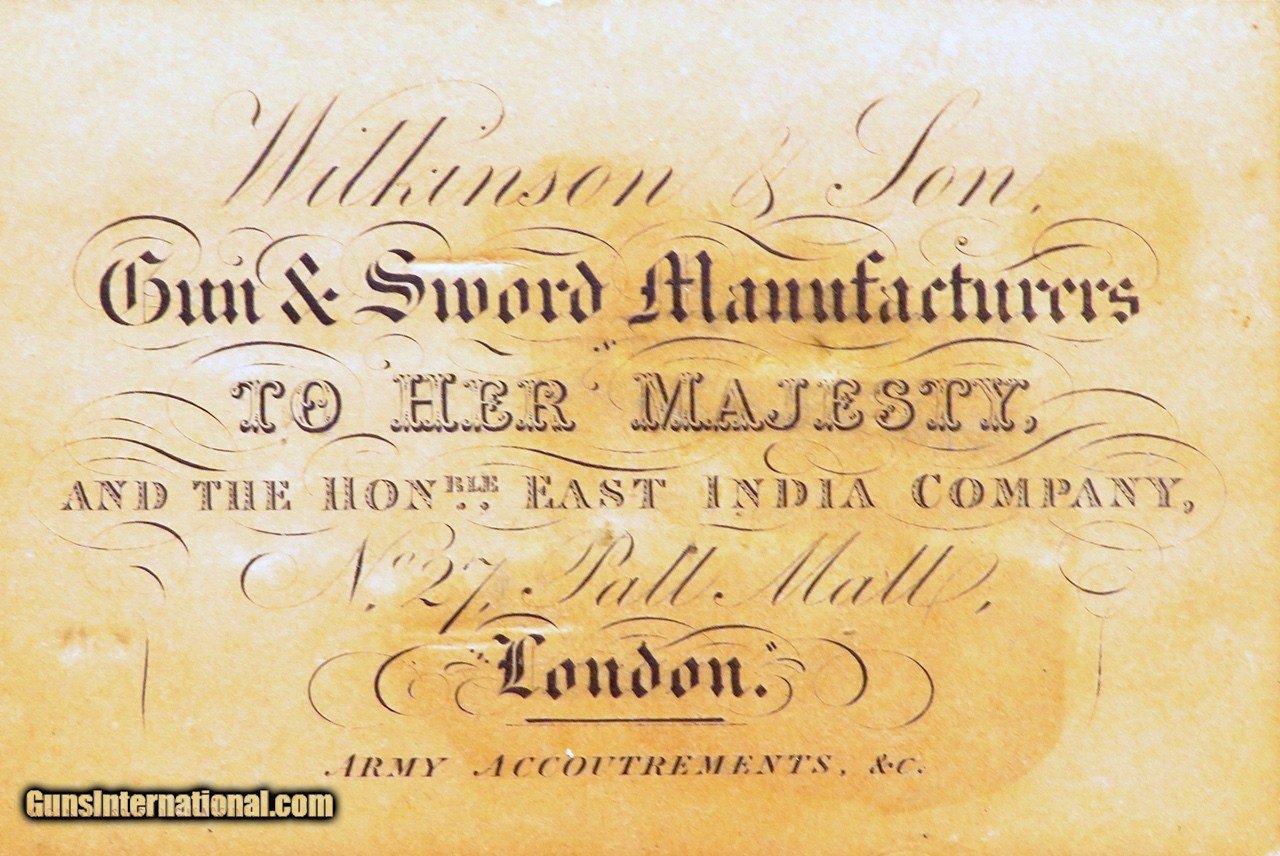 Wilkinson & Son,
Gun & Sword Manufacturers
TO HER MAJESTY,
AND THE HONBLE. EAST INDIA COMPANY,
No. 27, Pall Mall,
London.
ARMY ACCOUTREMENTS, &c.
GunsInternational.com